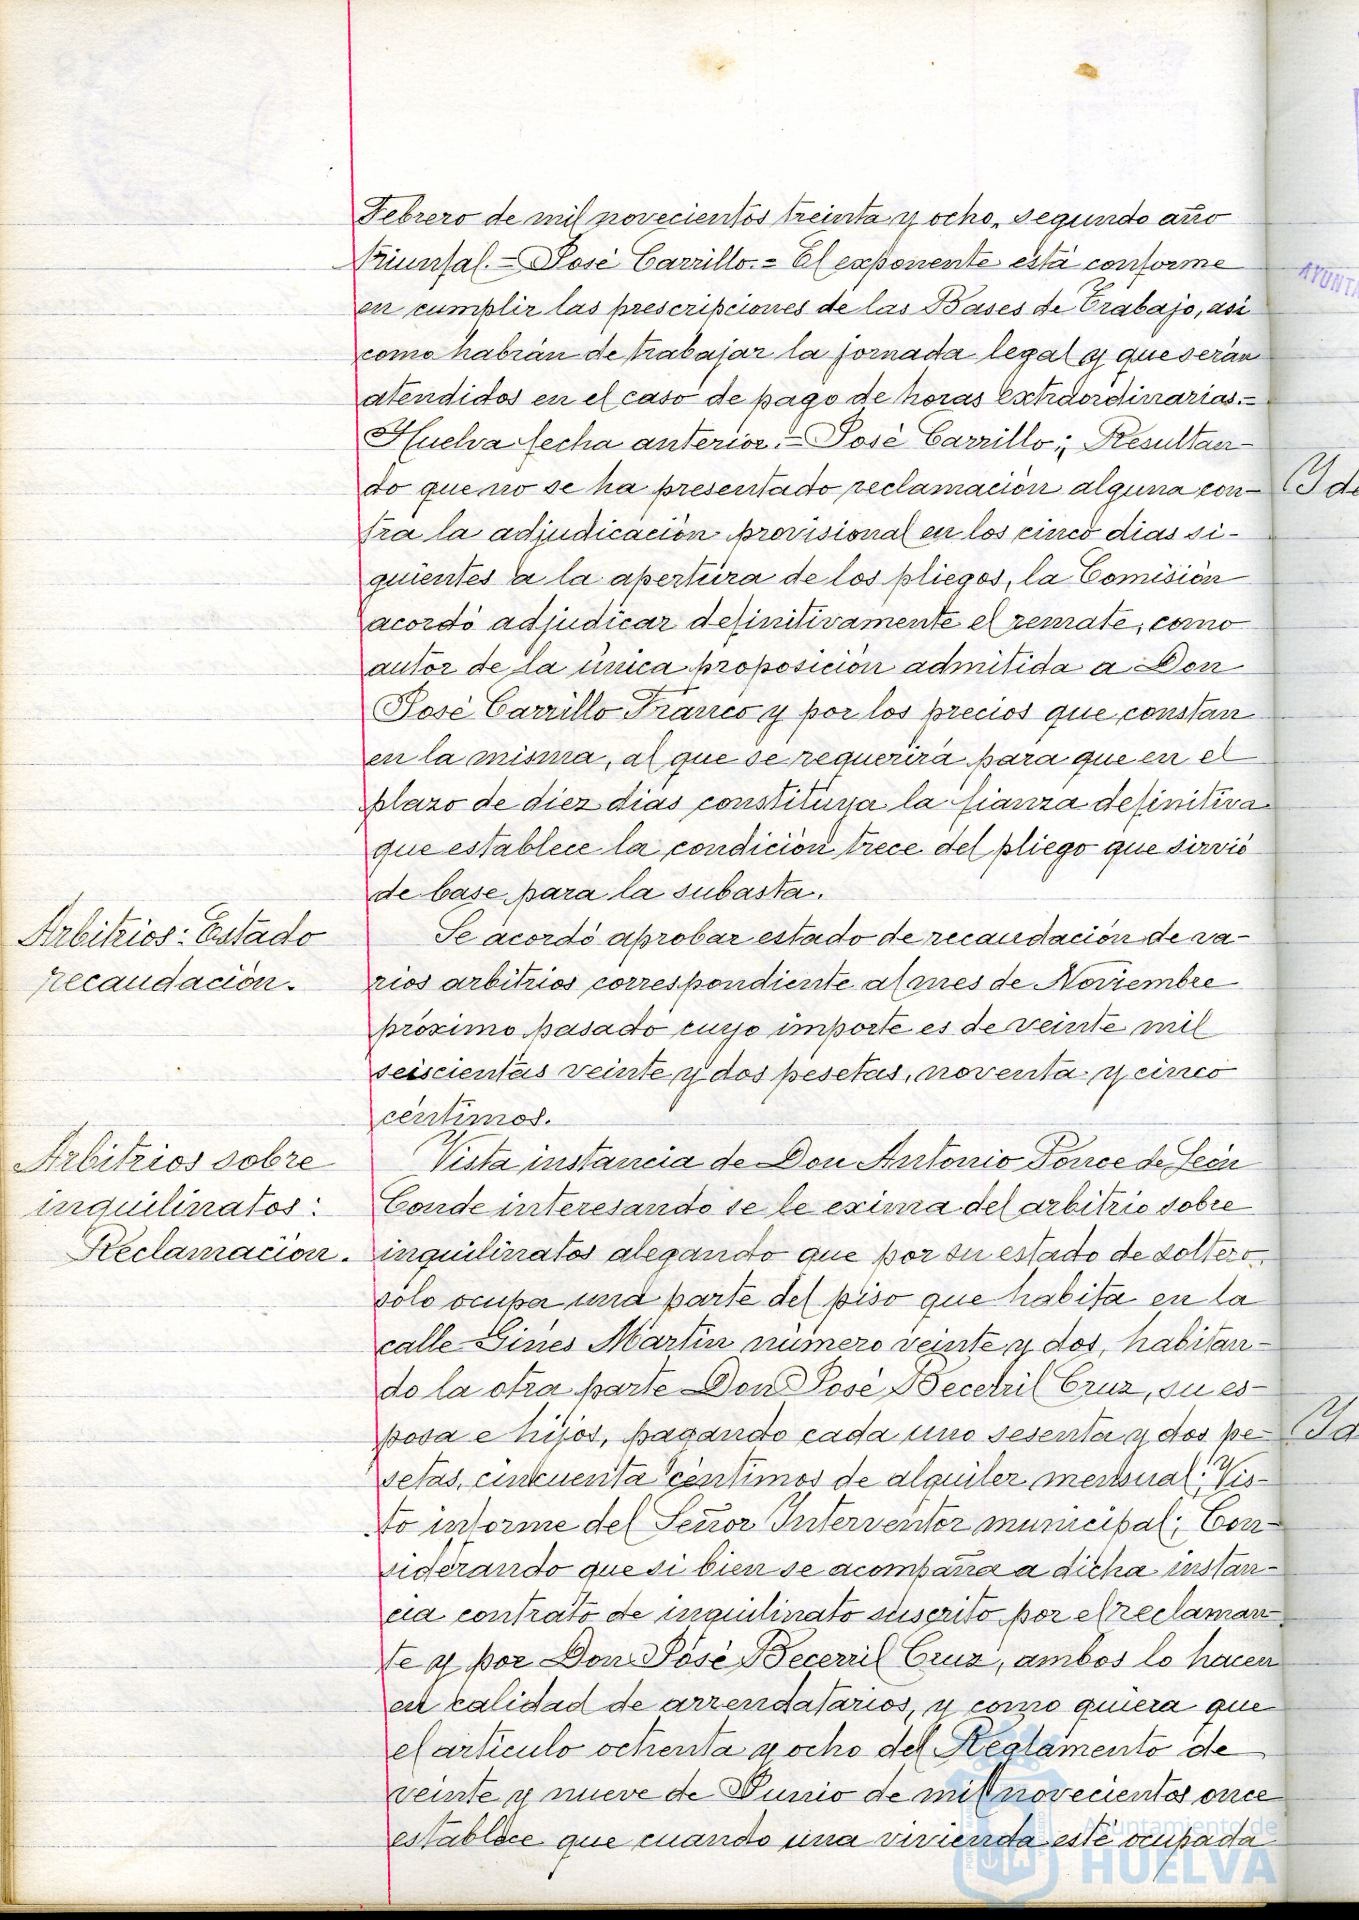 Febrero de mil novecientos treinta y ocho, segundo año
triunfal.= José Carrillo.= El exponente está conforme
en cumplir las prescripciones de las Bases de Trabajo, asi
como habrán de trabajar la jornada legal y que serán
atendidos en el caso de pago de horas extraordinarias.=
Huelva fecha anterior.= José Carrillo; Resultan-
do que no se ha presentado reclamación alguna con-
tra la adjudicación provisional en los cinco dias si-
guientes a la apertura de los pliegos, la Comisión
acordó adjudicar definitivamente el remate, como
autor de la única proposición admitida a Don
José Carrillo Franco y por los precios que constan
en la misma, al que se requerirá para que en el
plazo de diez dias constituya la fianza definitiva
que establece la condición trece del pliego que sirvió
de base para la subasta.
Arbitrios: Estado
recaudación.
Se acordó aprobar estado de recaudación de va-
rios arbitrios correspondiente al mes de Noviembre
próximo pasado cuyo importe es de veinte mil
seiscientas veinte y dos pesetas, noventa y cinco
céntimos.
Arbitrios sobre
inquilinatos:
Reclamación.
Vista instancia de Don Antonio Ponce de León
Conde interesando se le exima del arbitrio sobre
inquilinatos alegando que por su estado de soltero,
sólo ocupa una parte del piso que habita en la
calle Ginés Martín número veinte y dos, habitan-
do la otra parte Don José Becerril Cruz, su es-
posa e hijos, pagando cada uno sesenta y dos pe-
setas, cincuenta céntimos de alquiler mensual; Vis-
to informe del Señor Interventor municipal; Con-
siderando que si bien se acompaña a dicha instan-
cia contrato de inquilinato suscrito por el reclaman-
te y por Don José Becerril Cruz, ambos lo hacen
en calidad de arrendatarios, y como quiera que
el artículo ochenta y ocho del Reglamento de
veinte y nueve de Junio de mil novecientos once
establece que cuando una vivienda esté ocupada
Ayuntamiento de
HUELVA